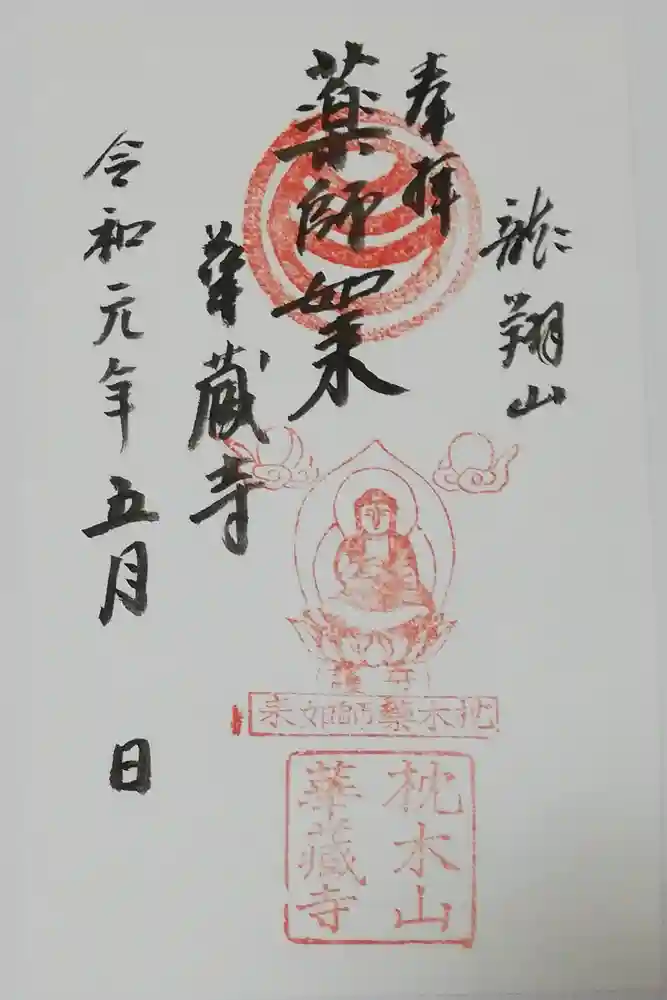 龍翔山
奉拝
薬師如来
華蔵寺
令和元年 五月 日
枕木薬師如来
枕木山
華藏寺